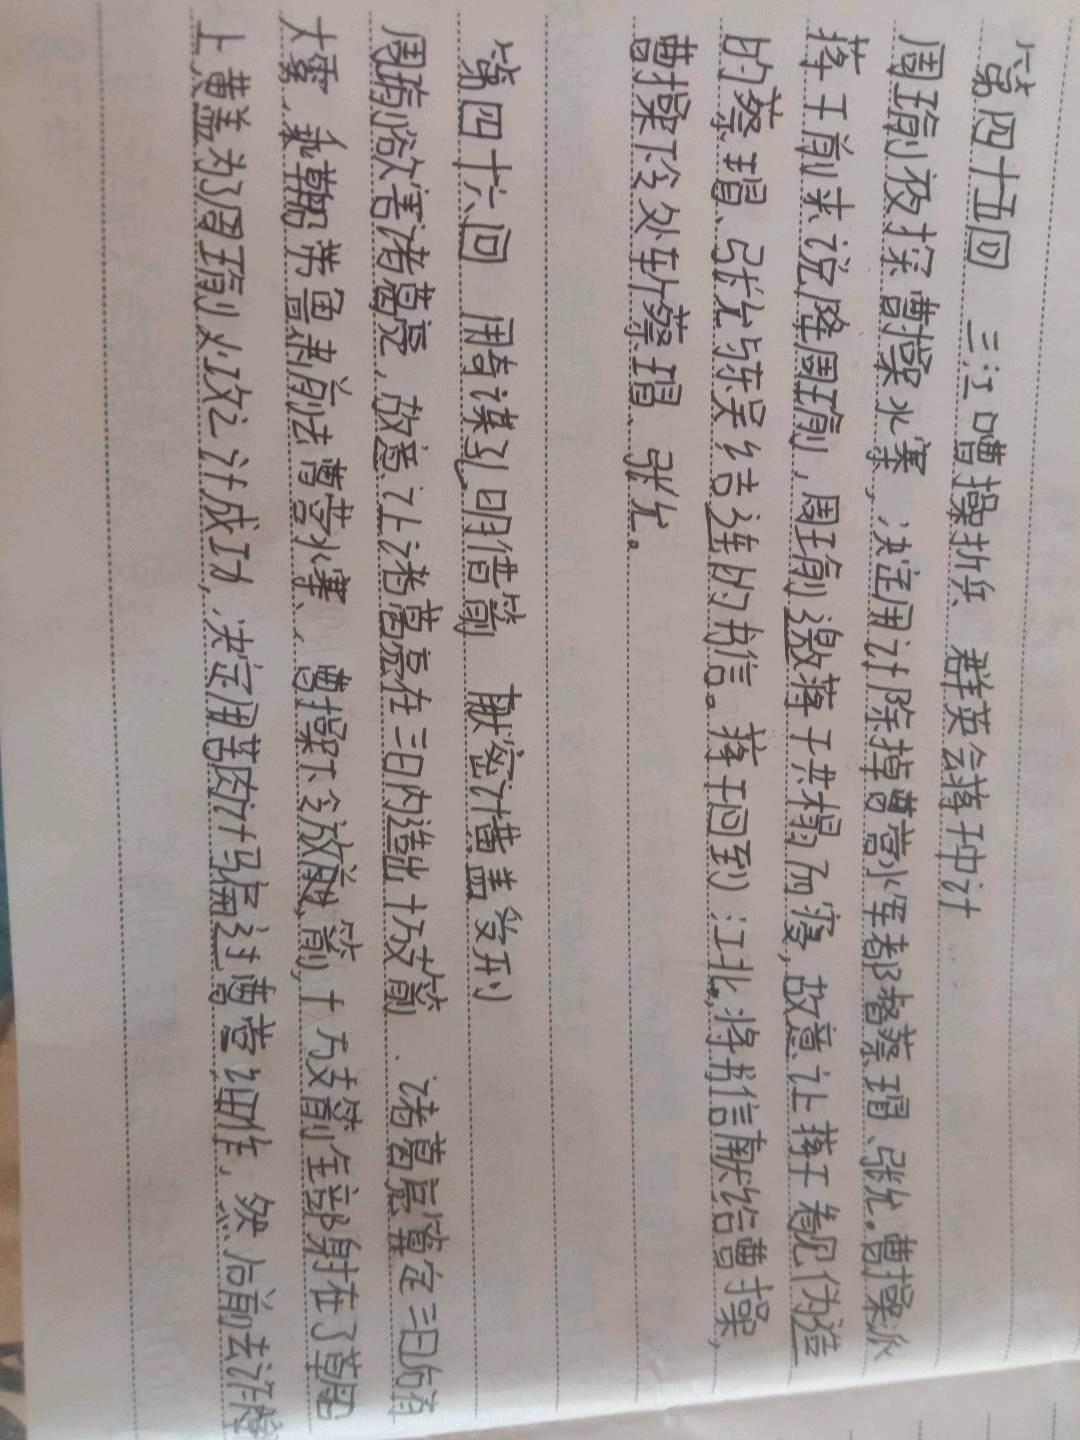 第四十五回 三江口曹操折兵 群英会蒋干中计
周瑜夜探曹操水寨,决定用计除掉曹营水军都督蔡瑁、张允。曹操派
蒋干前来说降周瑜,周瑜邀蒋干共榻而寝,故意让蒋干看见伪造
的蔡瑁、张允与东吴结连的书信。蒋干回到江北,将书信献给曹操,
曹操下令处斩蔡瑁、张允。
第四十六回 用奇谋孔明借箭 献密计黄盖受刑
周瑜欲害诸葛亮,故意让诸葛亮在三日内造出十万支箭.诸葛亮算定三日内有
大雾,乘船带鱼肃前去曹营水寨、曹操下令放箭,十万支箭全部射在了草船
上黄盖为了周瑜火攻之计成功,决定用苦肉计骗过曹营细作,然后前去诈降